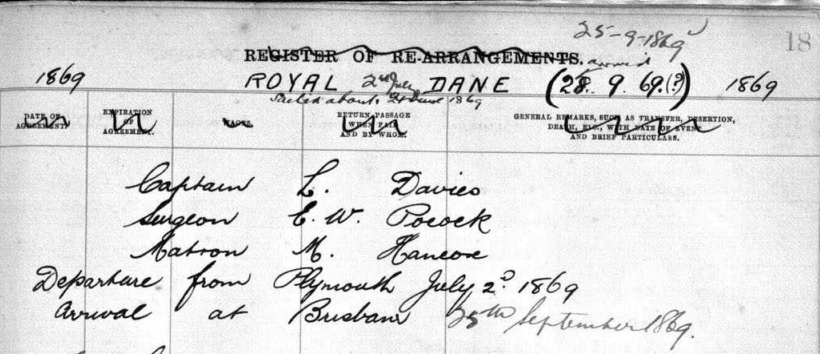 25-9-1869
18
REGISTER OF RE-ARRANGEMENTS. arrived
1869 ROYAL 2nd July DANE (28. 9. 69.(?)) 1869
Sailed about 21 June 1869
DATE OF AGREEMENT. EXPIRATION OF AGREEMENT. WAGES. RETURN PASSAGE WHEN PAID AND BY WHOM. GENERAL REMARKS, SUCH AS TRANSFER, DESERTION, DEATH, ETC., WITH DATE OF EVENT AND BRIEF PARTICULARS.
Captain L. Davies
Surgeon E. W. Pocock
Matron M.
Departure from Plymouth July 2d 1869
Arrival at Brisbane 25th September 1869.